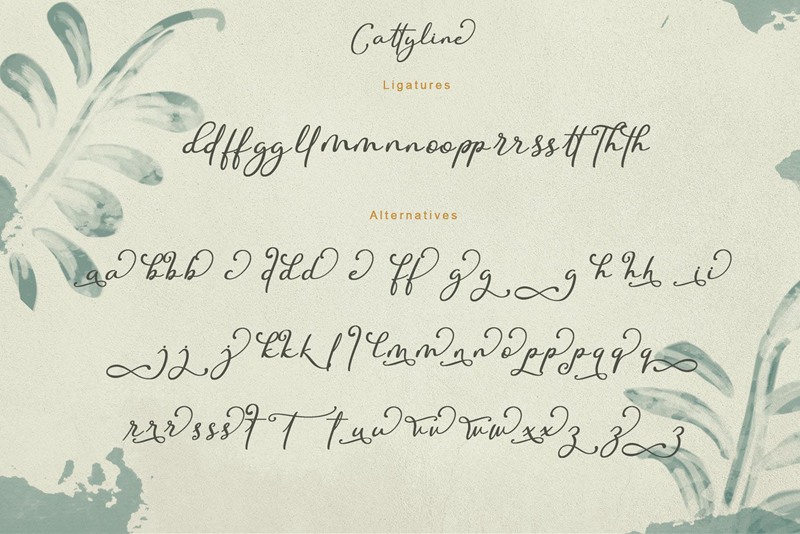 Cattyline
Ligatures
ddffggllmmnnoopprrssttThth
Alternatives
aa bbb c ddd e ff gg g h hh ii
jj j kkk l l l mm nn o pp p q q q
rrr sss t T t uu vv ww xx z z z